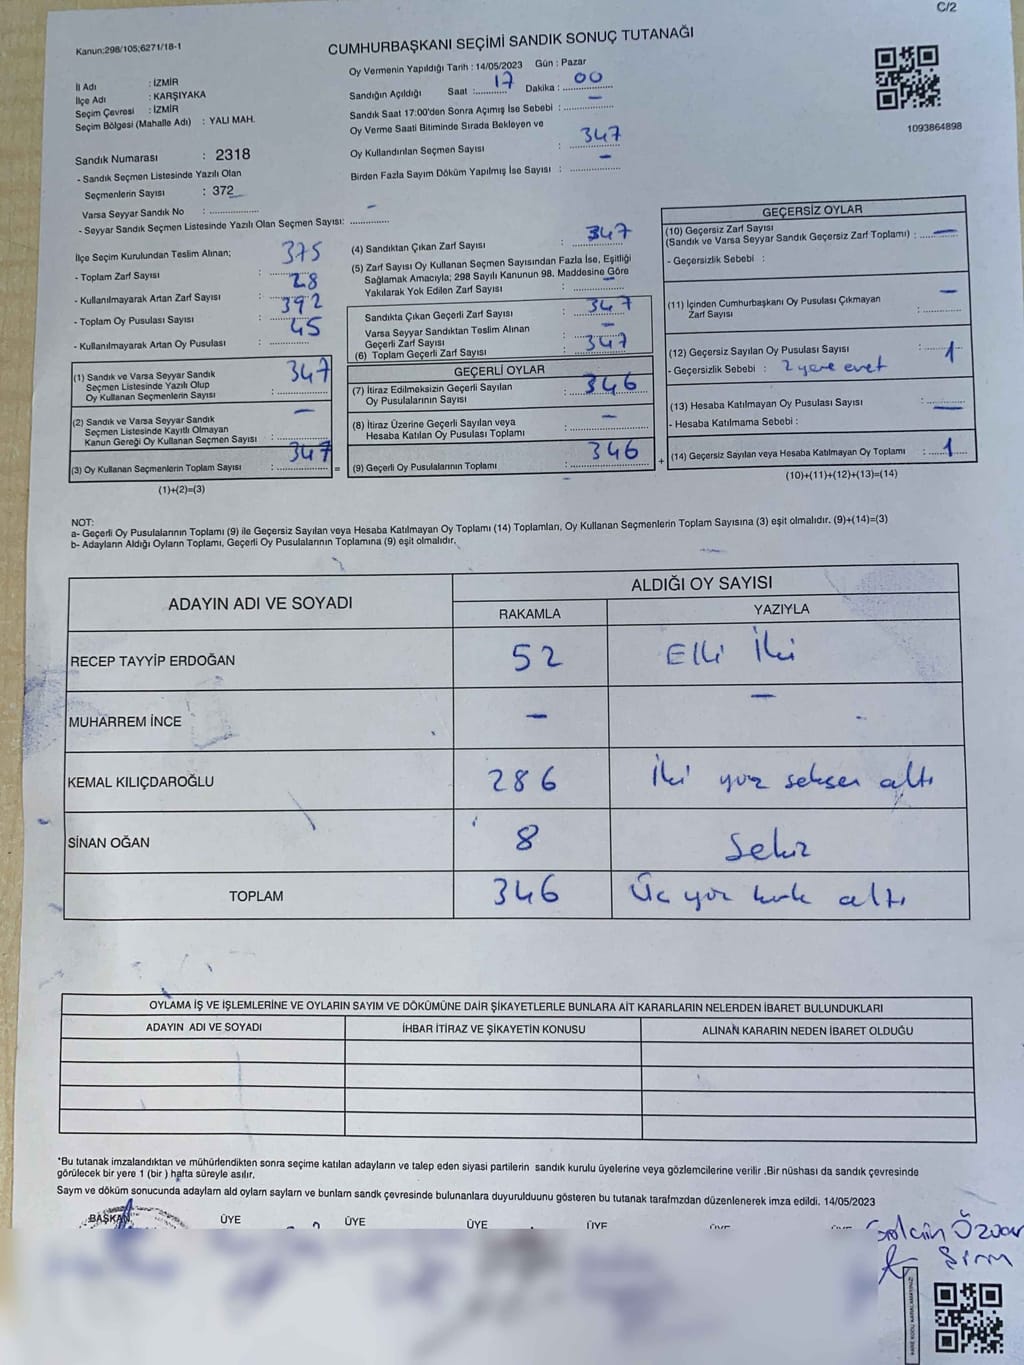 C/2
Kanun:298/105;6271/18-1
CUMHURBAŞKANI SEÇİMİ SANDIK SONUÇ TUTANAĞI
İl Adı : İZMİR
İlçe Adı : KARŞIYAKA
Seçim Çevresi : İZMİR
Seçim Bölgesi (Mahalle Adı) : YALI MAH.
Sandık Numarası : 2318
- Sandık Seçmen Listesinde Yazılı Olan
Seçmenlerin Sayısı : 372
Varsa Seyyar Sandık No : -
- Seyyar Sandık Seçmen Listesinde Yazılı Olan Seçmen Sayısı:
Oy Vermenin Yapıldığı Tarih : 14/05/2023 Gün : Pazar
Sandığın Açıldığı Saat : 17 Dakika : 00
Sandık Saat 17:00'den Sonra Açımış İse Sebebi : -
Oy Verme Saati Bitiminde Sırada Bekleyen ve
Oy Kullandırılan Seçmen Sayısı : 347
Birden Fazla Sayım Döküm Yapılmış İse Sayısı : -
1093864898
İlçe Seçim Kurulundan Teslim Alınan;
- Toplam Zarf Sayısı : 375
- Kullanılmayarak Artan Zarf Sayısı : 28
- Toplam Oy Pusulası Sayısı : 392
- Kullanılmayarak Artan Oy Pusulası : 45
(1) Sandık ve Varsa Seyyar Sandık
Seçmen Listesinde Yazılı Olup
Oy Kullanan Seçmenlerin Sayısı : 347
(2) Sandık ve Varsa Seyyar Sandık
Seçmen Listesinde Kayıtlı Olmayan
Kanun Gereği Oy Kullanan Seçmen Sayısı : -
(3) Oy Kullanan Seçmenlerin Toplam Sayısı : 347 =
(1)+(2)=(3)
(4) Sandıktan Çıkan Zarf Sayısı : 347
(5) Zarf Sayısı Oy Kullanan Seçmen Sayısından Fazla İse, Eşitliği
Sağlamak Amacıyla; 298 Sayılı Kanunun 98. Maddesine Göre
Yakılarak Yok Edilen Zarf Sayısı : -
Sandıkta Çıkan Geçerli Zarf Sayısı : 347
Varsa Seyyar Sandıktan Teslim Alınan
Geçerli Zarf Sayısı : -
(6) Toplam Geçerli Zarf Sayısı : 347
GEÇERLİ OYLAR
(7) İtiraz Edilmeksizin Geçerli Sayılan
Oy Pusulalarının Sayısı : 346
(8) İtiraz Üzerine Geçerli Sayılan veya
Hesaba Katılan Oy Pusulası Toplamı : -
(9) Geçerli Oy Pusulalarının Toplamı : 346 +
GEÇERSİZ OYLAR
(10) Geçersiz Zarf Sayısı
(Sandık ve Varsa Seyyar Sandık Geçersiz Zarf Toplamı) : -
- Geçersizlik Sebebi :
(11) İçinden Cumhurbaşkanı Oy Pusulası Çıkmayan
Zarf Sayısı : -
(12) Geçersiz Sayılan Oy Pusulası Sayısı : 1
- Geçersizlik Sebebi : 2 yere evet
(13) Hesaba Katılmayan Oy Pusulası Sayısı : -
- Hesaba Katılmama Sebebi :
(14) Geçersiz Sayılan veya Hesaba Katılmayan Oy Toplamı : 1
(10)+(11)+(12)+(13)=(14)
NOT:
a- Geçerli Oy Pusulalarının Toplamı (9) ile Geçersiz Sayılan veya Hesaba Katılmayan Oy Toplamı (14) Toplamları, Oy Kullanan Seçmenlerin Toplam Sayısına (3) eşit olmalıdır. (9)+(14)=(3)
b- Adayların Aldığı Oyların Toplamı, Geçerli Oy Pusulalarının Toplamına (9) eşit olmalıdır.
ADAYIN ADI VE SOYADI
ALDIĞI OY SAYISI
RAKAMLA YAZIYLA
RECEP TAYYİP ERDOĞAN 52 Elli İki
MUHARREM İNCE - -
KEMAL KILIÇDAROĞLU 286 İki yüz seksen altı
SİNAN OĞAN 8 Sekiz
TOPLAM 346 Üç yüz kırk altı
OYLAMA İŞ VE İŞLEMLERİNE VE OYLARIN SAYIM VE DÖKÜMÜNE DAİR ŞİKAYETLERLE BUNLARA AİT KARARLARIN NELERDEN İBARET BULUNDUKLARI
ADAYIN ADI VE SOYADI İHBAR İTİRAZ VE ŞİKAYETİN KONUSU ALINAN KARARIN NEDEN İBARET OLDUĞU
*Bu tutanak imzalandıktan ve mühürlendikten sonra seçime katılan adayların ve talep eden siyasi partilerin sandık kurulu üyelerine veya gözlemcilerine verilir .Bir nüshası da sandık çevresinde
görülecek bir yere 1 (bir ) hafta süreyle asılır.
Saym ve döküm sonucunda adaylarn ald oylarn saylarn ve bunlarn sandk çevresinde bulunanlara duyurulduunu gösteren bu tutanak tarafmzdan düzenlenerek imza edildi. 14/05/2023
BAŞKAN ÜYE ÜYE ÜYE ÜYE